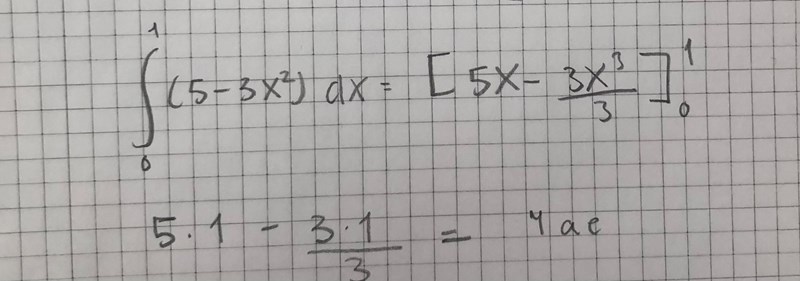 ∫₀¹ (5-3x²) dx = [5x - 3x³/3]₀¹
5·1 - 3·1/3 = 4 ae